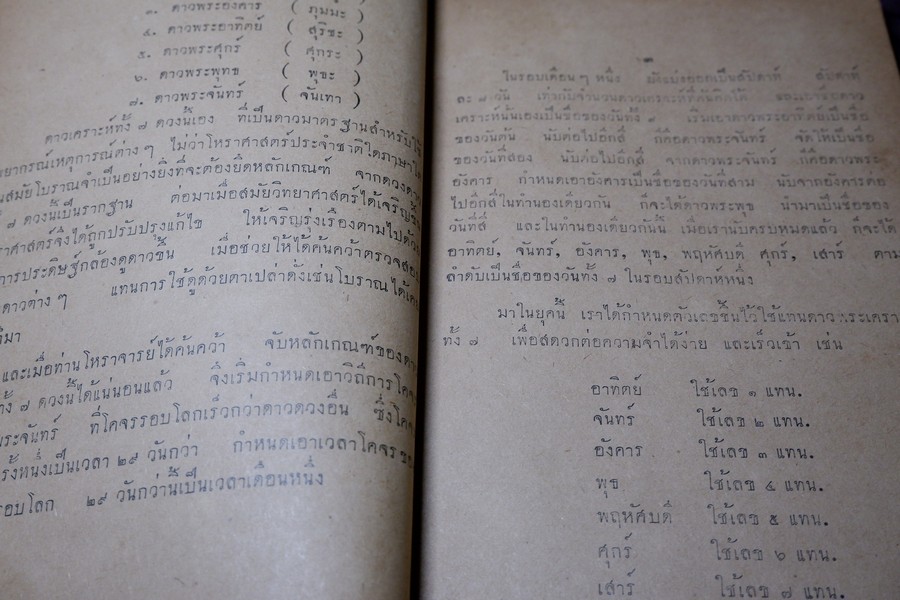 ๓. ดาวพระอังคาร ( ภุมมะ )
๔. ดาวพระอาทิตย์ ( สุริชะ )
๕. ดาวพระศุกร์ ( ศุกระ )
๖. ดาวพระพุทธ ( พุธะ )
๗. ดาวพระจันทร์ ( จันเทา )
ดาวเคราะห์ทั้ง ๗ ดวงนี้เอง ที่เป็นดาวมาตรฐานสำหรับใช้
ยากรณ์เหตุการณ์ต่างๆ ไม่ว่าโหราศาสตร์ประจำชาติใดภาษาใด
สมัยโบราณจำเป็นอย่างยิ่งที่จะต้องยึดหลักเกณฑ์ จากดวงดาว
๗ ดวงนี้เป็นรากฐาน ต่อมาเมื่อสมัยวิทยาศาสตร์ได้เจริญขึ้น
าศาสตร์จึงได้ถูกปรับปรุงแก้ไข ให้เจริญรุ่งเรืองตามไปด้วย
การประดิษฐ์กล้องดูดาวขึ้น เมื่อช่วยให้ได้ค้นคว้าตรวจสอบ
ดาวต่างๆ แทนการใช้ดูด้วยตาเปล่าดั่งเช่นโบราณได้เคย
และเมื่อท่านโหราจารย์ได้ค้นคว้า จับหลักเกณฑ์ของดาว
ั้ง ๗ ดวงนี้ได้แน่นอนแล้ว จึงเริ่มกำหนดเอาวิถีการโคจ
พระจันทร์ ที่โคจรรอบโลกเร็วกว่าดาวดวงอื่น ซึ่งโคจ
รั้งหนึ่งเป็นเวลา ๒๙ วันกว่า กำหนดเอาเวลาโคจรขอ
รอบโลก ๒๙ วันกว่านี้เป็นเวลาเดือนหนึ่ง
ในรอบเดือนๆ หนึ่ง ยังแบ่งออกเป็นสัปดาห์ สัปดาห์
ละ ๗ วัน เท่ากับจำนวนดาวเคราะห์ที่ค้นคิดได้ และเอาชื่อดาว
เคราะห์นั้นเองเป็นชื่อของวันทั้ง ๗ เริ่มเอาดาวพระอาทิตย์เป็นชื่อ
ของวันต้น นับต่อไปอีกสี่ ก็คือดาวพระจันทร์ จัดให้เป็นชื่อ
ของวันที่สอง นับต่อไปอีกสี่ จากดาวพระจันทร์ ก็คือดาวพระ
อังคาร กำหนดเอาอังคารเป็นชื่อของวันที่สาม นับจากอังคารต่อ
ไปอีกสี่ในทำนองเดียวกัน ก็จะได้ดาวพระพุธ นำมาเป็นชื่อของ
วันที่สี่ และในทำนองเดียวกันนี้ เมื่อเรานับครบหมดแล้ว ก็จะได้
อาทิตย์, จันทร์, อังคาร, พุธ, พฤหัศบดี ศุกร์, เสาร์ ตาม
ลำดับเป็นชื่อของวันทั้ง ๗ ในรอบสัปดาห์หนึ่ง
มาในยุคนี้ เราได้กำหนดตัวเลขขึ้นไว้ใช้แทนดาวพระเครา
ทั้ง ๗ เพื่อสดวกต่อความจำได้ง่าย และเร็วเข้า เช่น
อาทิตย์ ใช้เลข ๑ แทน.
จันทร์ ใช้เลข ๒ แทน.
อังคาร ใช้เลข ๓ แทน.
พุธ ใช้เลข ๔ แทน.
พฤหัศบดี ใช้เลข ๕ แทน.
ศุกร์ ใช้เลข ๖ แทน.
เสาร์ ใช้เลข ๗ แทน.